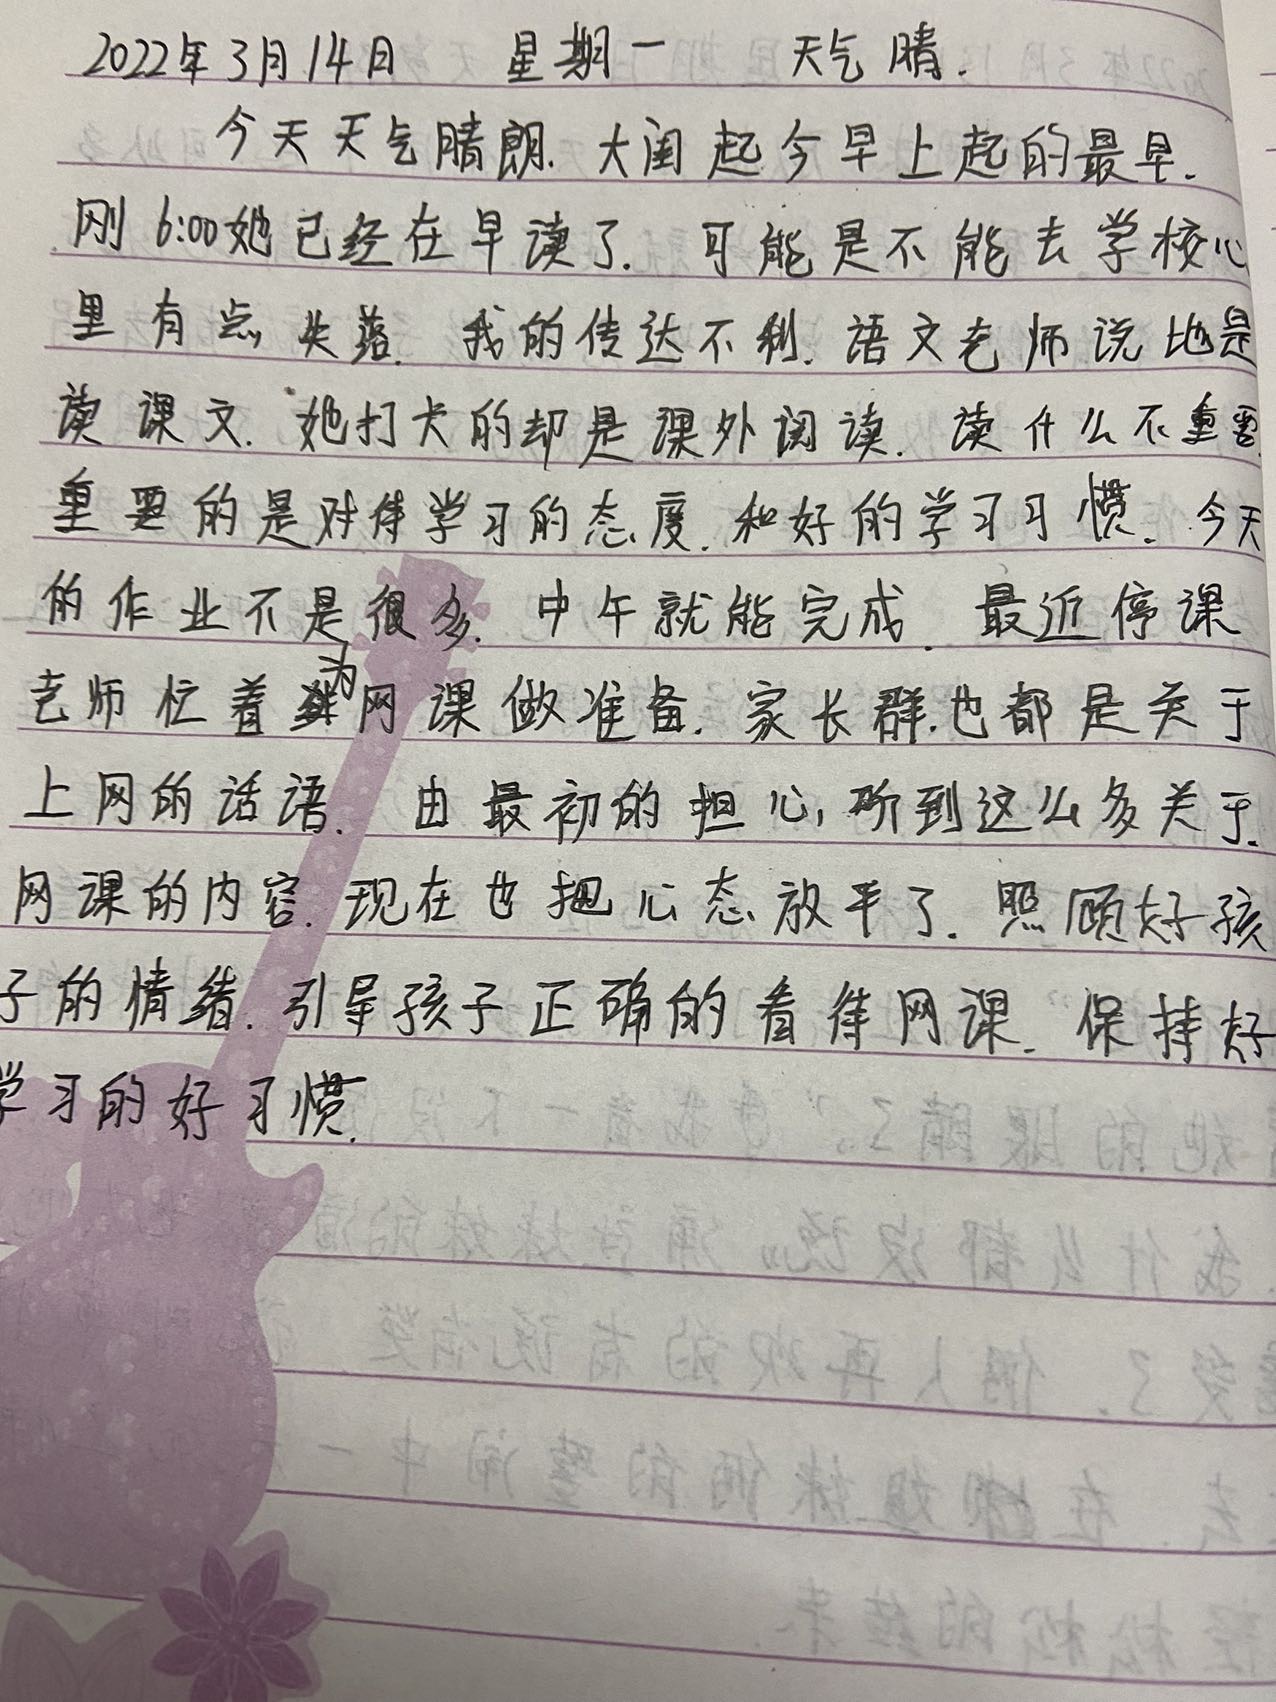 2022年3月14日 星期一 天气晴.
今天天气晴朗.大闺起今早上起的最早.
刚6:00她已经在早读了.可能是不能去学校心
里有点失落.我的传达不利.语文老师说地是
读课文.她打卡的却是课外阅读.读什么不重要
重要的是对待学习的态度.和好的学习习惯.今天
的作业不是很多.中午就能完成.最近停课
老师忙着为网课做准备.家长群.也都是关于
上网的话语.由最初的担心,听到这么多关于.
网课的内容.现在也把心态放平了.照顾好孩
子的情绪.引导孩子正确的看待网课.保持好
学习的好习惯.